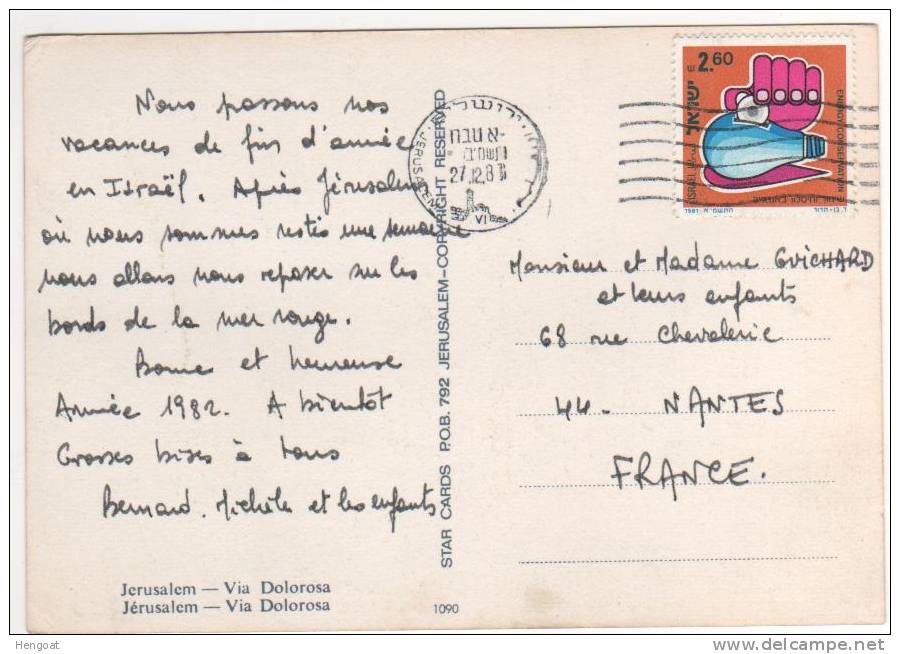 Nous passons nos
vacances de fin d'année
en Israël. Après Jérusalem
où nous sommes restés une semaine
nous allons nous reposer sur les
bords de la mer rouge.
Bonne et heureuse
Année 1982. A bientôt
Grosses bises à tous
Bernard. Michèle et les enfants
Jerusalem — Via Dolorosa
Jérusalem — Via Dolorosa
1090
STAR CARDS P.O.B. 792 JERUSALEM–COPYRIGHT RESERVED
ירושלים
JERUSALEM
27.12.8
VI
2.60
ישראל
ISRAEL
ENERGY CONSERVATION
1981
Monsieur et Madame GUICHARD
et leurs enfants
68 rue Chevalerie
44. NANTES
FRANCE.
Hengoat
www.delcampe.net